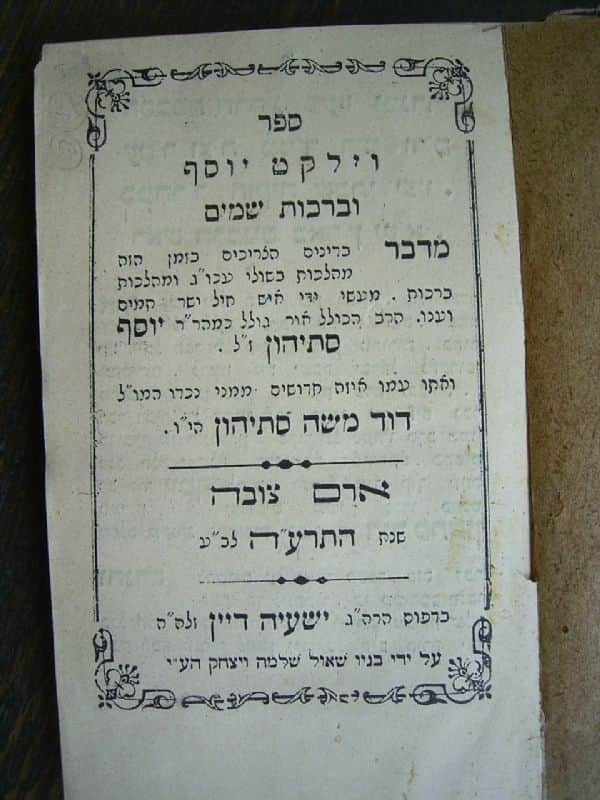 ספר
וילקט יוסף
וברכות שמים
מדבר בדינים הצריכים בזמן הזה
מהלכות בשולי עכו״ג ומהלכות
ברכות . מעשי ידי איש חיל ישר תמים
וענו. הרב הכולל אור גולל כמהר״ר יוסף
סתיהון ז״ל .
ואתו עמו איזה חדושים ממני נכדו המו״ל
דוד משה סתיהון הי״ו .
ארם צובה
שנת התרע״ה לב״ע
בדפוס הרה״ג ישעיה דיין זלה״ה
על ידי בניו שאול שלמה ויצחק הע״י